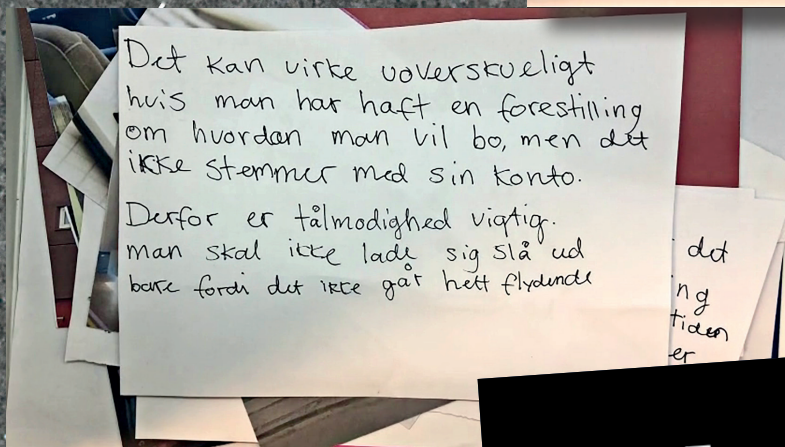 Det kan virke uoverskueligt
hvis man har haft en forestilling
om hvordan man vil bo, men det
ikke stemmer med sin konto.
Derfor er tålmodighed vigtig.
man skal ikke lade sig slå ud
bare fordi det ikke går helt flydende
det
ng
tiden
er